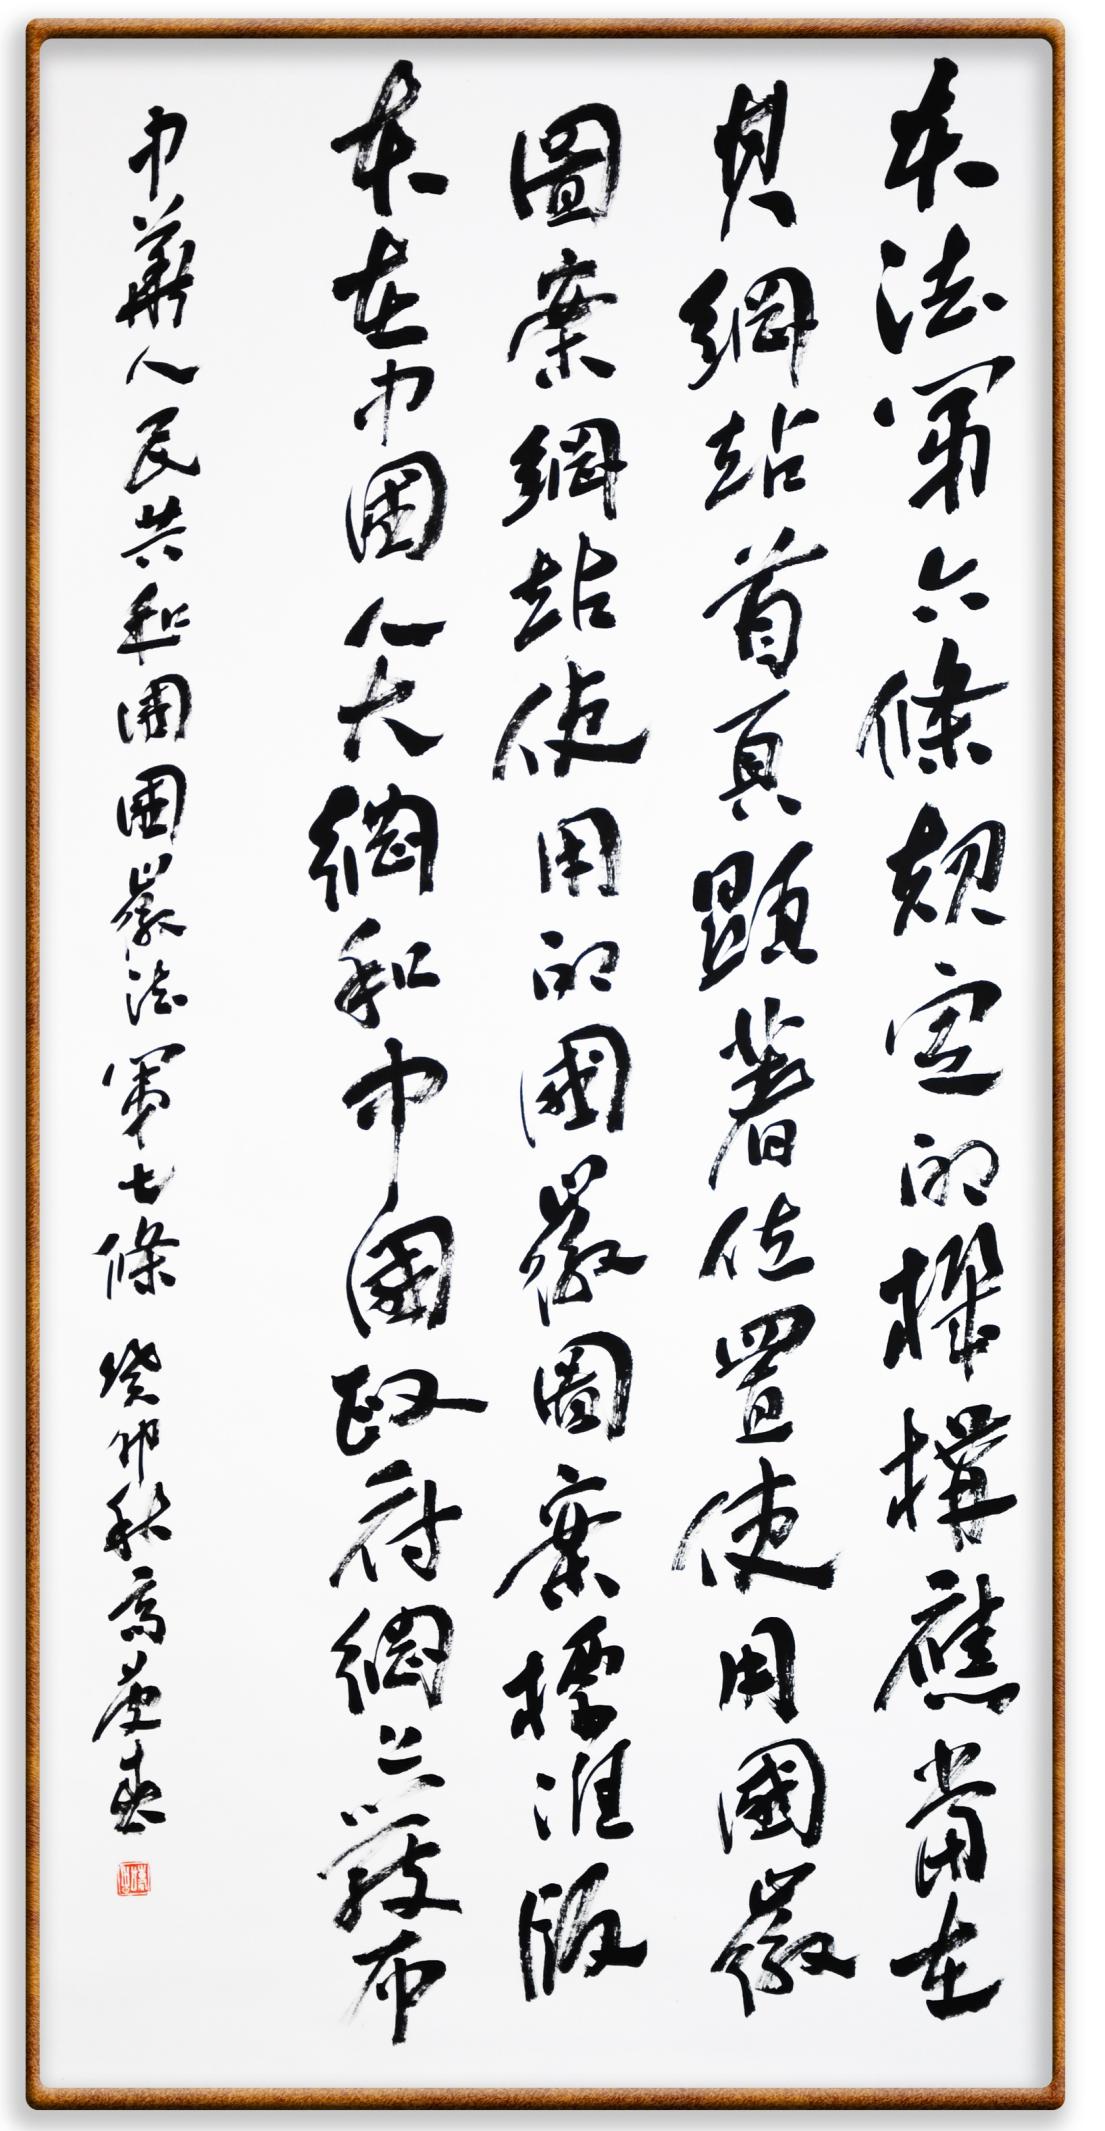 本法第六條規定的機構應當在
其網站首頁顯著位置使用國徽
圖案網站使用的國徽圖案標准版
本在中國人大網和中國政府網上發布
中華人民共和國國徽法第七條 癸卯秋高慶春